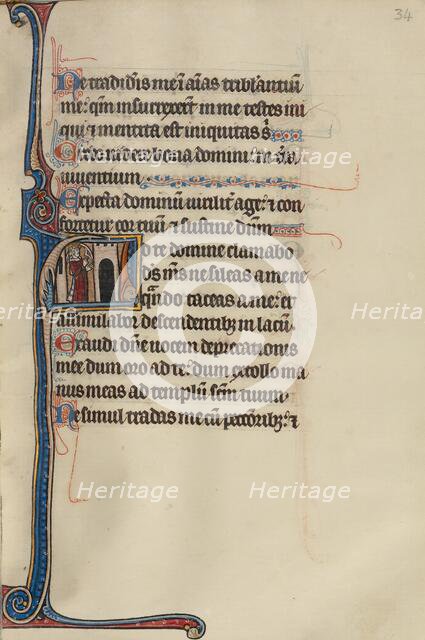 34
Ne tradideris me in aĩas tribulantiũ
me: qm̃ insurrexerũt in me testes ini
qui ⁊ mentita est iniquitas s̃
Credo videre bona domini in t̃ra
viventium
Expecta dominũ viriliť age: ⁊ con
fortetur cor tuũ ⁊ sustine dñm
Ad te domine clamabo
ds̃ ms̃ ne sileas a me ne
qñdo taceas a me: et
assimilabor descendentibȝ in lacũ
Exaudi dñe vocem deprecationis
mee dum oro ad te: dum extollo ma
nus meas ad templũ scm̃ tuum
Ne simul tradas me cũ peccoribȝ: ⁊
Heritage
Heritage
Heritage
Heritage
Heritage
Heritage
Heritage